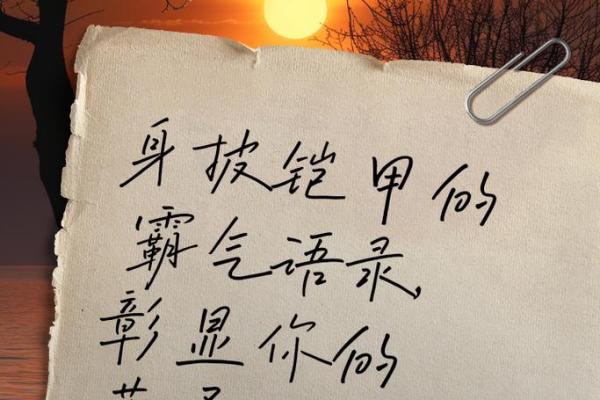 身披铠甲的
霸气语录,
彰显你的